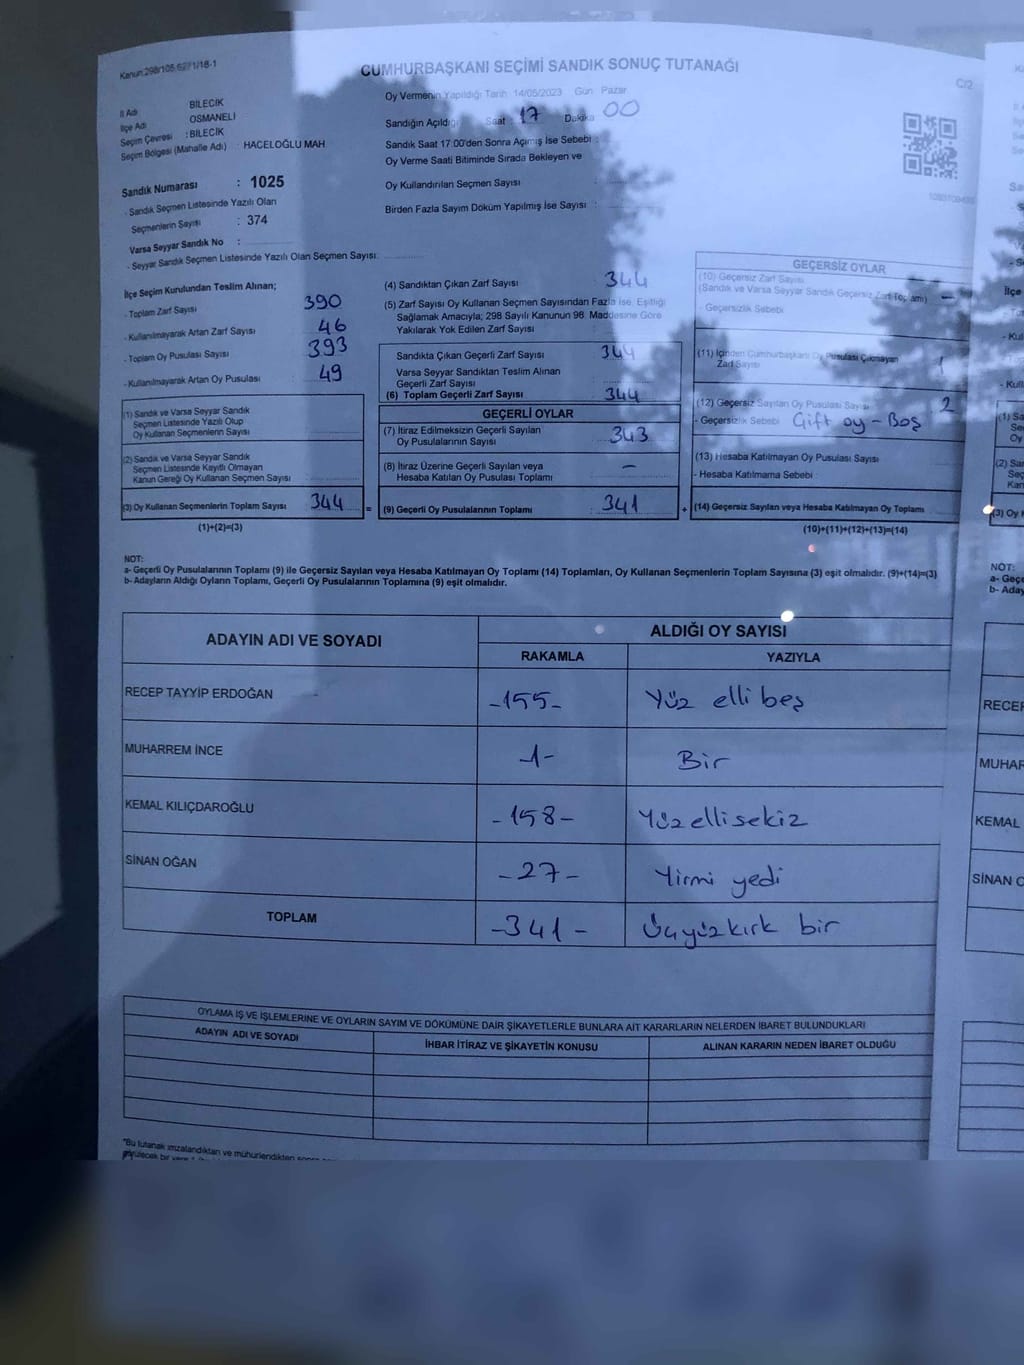 Kanun:298/105,62/1/18-1
CUMHURBAŞKANI SEÇİMİ SANDIK SONUÇ TUTANAĞI
C/2
Oy Vermenin Yapıldığı Tarih 14/05/2023 Gün Pazar
İl Adı BİLECİK
İlçe Adı OSMANELİ
Seçim Çevresi : BİLECİK
Seçim Bölgesi (Mahalle Adı) : HACELOĞLU MAH
Sandığın Açıldığı Saat : 17 Dakika 00
Sandık Saat 17:00'den Sonra Açılmış İse Sebebi :
Oy Verme Saati Bitiminde Sırada Bekleyen ve
Oy Kullandırılan Seçmen Sayısı :
Birden Fazla Sayım Döküm Yapılmış İse Sayısı :
Sandık Numarası : 1025
- Sandık Seçmen Listesinde Yazılı Olan
Seçmenlerin Sayısı : 374
Varsa Seyyar Sandık No :
- Seyyar Sandık Seçmen Listesinde Yazılı Olan Seçmen Sayısı:
İlçe Seçim Kurulundan Teslim Alınan;
- Toplam Zarf Sayısı 390
- Kullanılmayarak Artan Zarf Sayısı 46
- Toplam Oy Pusulası Sayısı 393
- Kullanılmayarak Artan Oy Pusulası 49
(1) Sandık ve Varsa Seyyar Sandık
Seçmen Listesinde Yazılı Olup
Oy Kullanan Seçmenlerin Sayısı
(2) Sandık ve Varsa Seyyar Sandık
Seçmen Listesinde Kayıtlı Olmayan
Kanun Gereği Oy Kullanan Seçmen Sayısı
(3) Oy Kullanan Seçmenlerin Toplam Sayısı 344 =
(1)+(2)=(3)
(4) Sandıktan Çıkan Zarf Sayısı : 344
(5) Zarf Sayısı Oy Kullanan Seçmen Sayısından Fazla ise, Eşitliği
Sağlamak Amacıyla; 298 Sayılı Kanunun 98. Maddesine Göre
Yakılarak Yok Edilen Zarf Sayısı :
Sandıkta Çıkan Geçerli Zarf Sayısı : 344
Varsa Seyyar Sandıktan Teslim Alınan
Geçerli Zarf Sayısı
(6) Toplam Geçerli Zarf Sayısı : 344
GEÇERLİ OYLAR
(7) İtiraz Edilmeksizin Geçerli Sayılan
Oy Pusulalarının Sayısı : 343
(8) İtiraz Üzerine Geçerli Sayılan veya
Hesaba Katılan Oy Pusulası Toplamı : —
(9) Geçerli Oy Pusulalarının Toplamı : 341 +
GEÇERSİZ OYLAR
(10) Geçersiz Zarf Sayısı
(Sandık ve Varsa Seyyar Sandık Geçersiz Zarf Toplamı) —
- Geçersizlik Sebebi :
(11) İçinden Cumhurbaşkanı Oy Pusulası Çıkmayan
Zarf Sayısı 1
(12) Geçersiz Sayılan Oy Pusulası Sayısı 2
- Geçersizlik Sebebi : Çift oy - Boş
(13) Hesaba Katılmayan Oy Pusulası Sayısı
- Hesaba Katılmama Sebebi :
(14) Geçersiz Sayılan veya Hesaba Katılmayan Oy Toplamı
(10)+(11)+(12)+(13)=(14)
NOT:
a- Geçerli Oy Pusulalarının Toplamı (9) ile Geçersiz Sayılan veya Hesaba Katılmayan Oy Toplamı (14) Toplamları, Oy Kullanan Seçmenlerin Toplam Sayısına (3) eşit olmalıdır. (9)+(14)=(3)
b- Adayların Aldığı Oyların Toplamı, Geçerli Oy Pusulalarının Toplamına (9) eşit olmalıdır.
ADAYIN ADI VE SOYADI
ALDIĞI OY SAYISI
RAKAMLA YAZIYLA
RECEP TAYYİP ERDOĞAN -155- Yüz elli beş
MUHARREM İNCE -1- Bir
KEMAL KILIÇDAROĞLU -158- Yüzellisekiz
SİNAN OĞAN -27- Yirmi yedi
TOPLAM -341- Üçyüzkırk bir
OYLAMA İŞ VE İŞLEMLERİNE VE OYLARIN SAYIM VE DÖKÜMÜNE DAİR ŞİKAYETLERLE BUNLARA AİT KARARLARIN NELERDEN İBARET BULUNDUKLARI
ADAYIN ADI VE SOYADI İHBAR İTİRAZ VE ŞİKAYETİN KONUSU ALINAN KARARIN NEDEN İBARET OLDUĞU
*Bu tutanak imzalandıktan ve mühürlendikten sonra
NOT:
a- Geçe
b- Aday
RECEP
MUHAR
KEMAL
SİNAN O